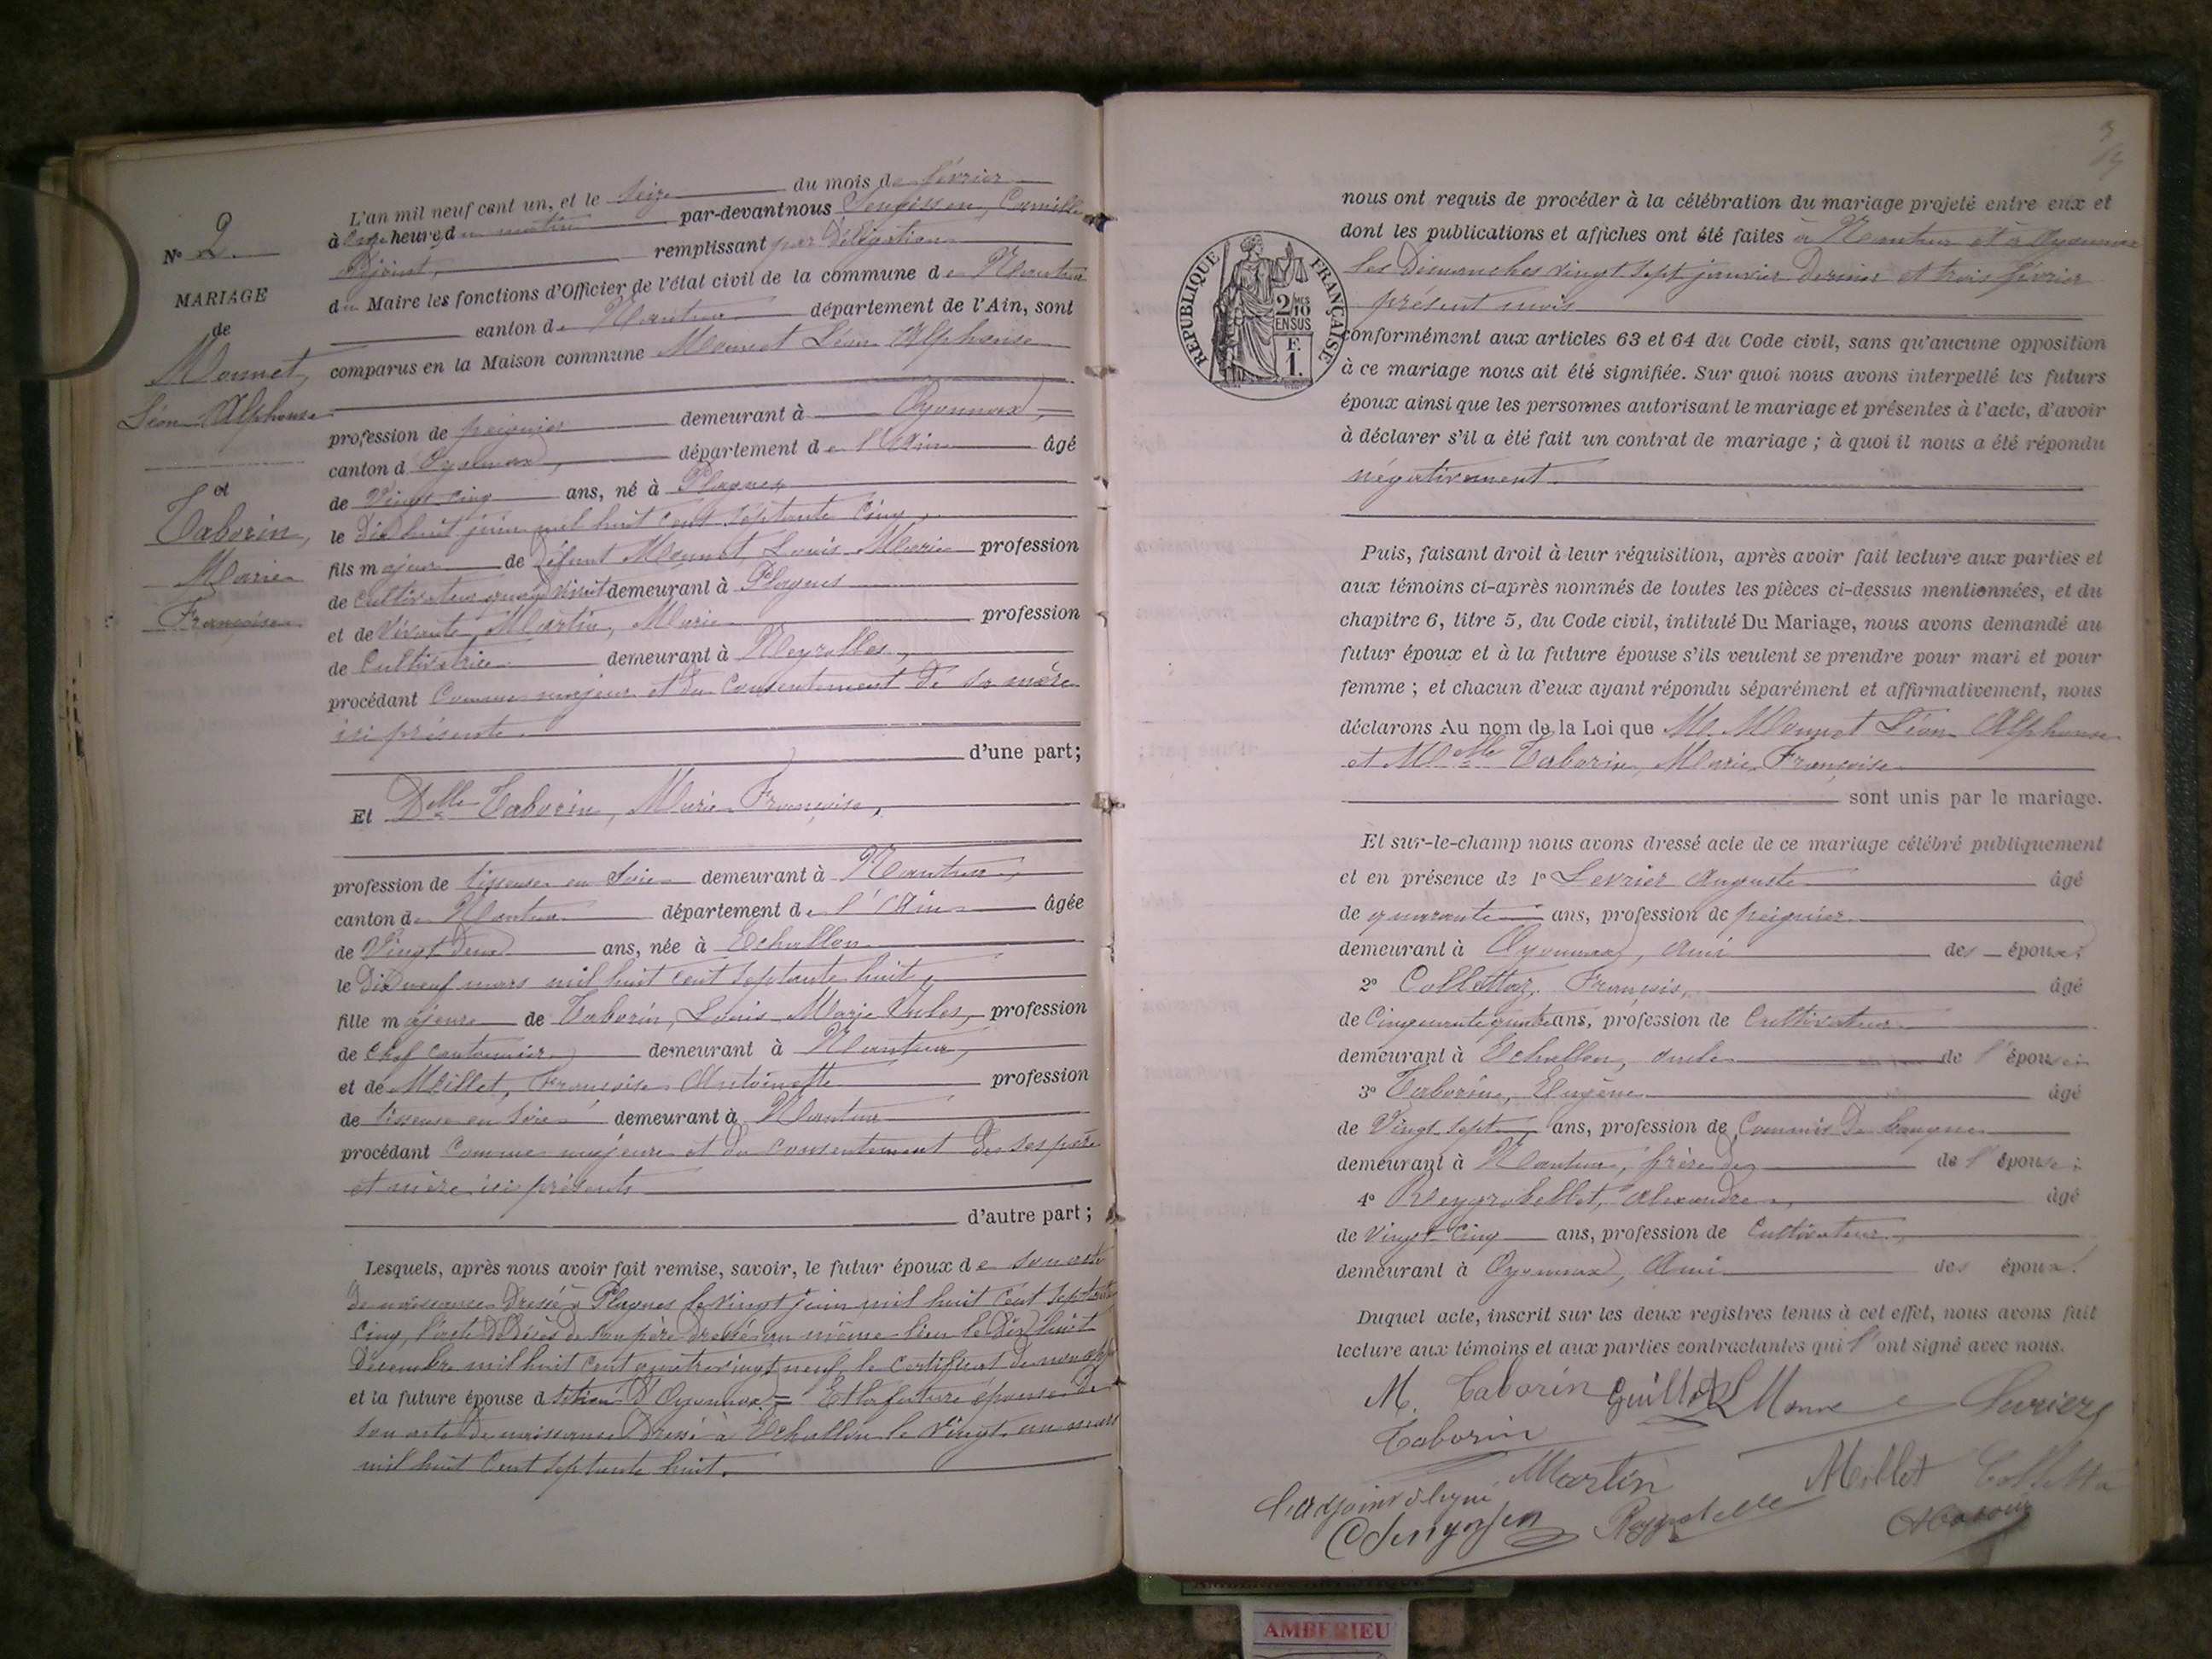 No 2.
MARIAGE
de
Monnet,
Léon Alphonse
et
Taborin,
Marie
Françoise
L'an mil neuf cent un, et le seize du mois de février
à onze heure du matin par-devant nous Camille
Adjoint, remplissant par délégation
du Maire les fonctions d'Officier de l'état civil de la commune de Nantua
canton de Nantua département de l'Ain, sont
comparus en la Maison commune Monnet Léon Alphonse
profession de peignier demeurant à Oyonnax,
canton d'Oyonnax, département de l'Ain âgé
de vingt cinq ans, né à Plagnes
le dix huit juin mil huit cent septante cinq,
fils majeur de défunt Monnet, Louis Marie profession
de cultivateur quand vivait demeurant à Plagnes
et de vivante Martin, Marie profession
de cultivatrice demeurant à Neyrolles,
procédant comme majeur et du consentement de sa mère
ici présente.
d'une part;
Et Delle Taborin, Marie Françoise,
profession de tisseuse en soie demeurant à Nantua,
canton de Nantua département de l'Ain âgée
de vingt deux ans, née à Echallon
le dix neuf mars mil huit cent septante huit,
fille majeure de Taborin, Louis Marie Jules, profession
de chef cantonnier demeurant à Nantua,
et de Millet, Françoise Antoinette profession
de tisseuse en soie demeurant à Nantua
procédant comme majeure et du consentement de ses père
et mère ici présents
d'autre part;
Lesquels, après nous avoir fait remise, savoir, le futur époux de son acte
de naissance dressé à Plagnes le vingt juin mil huit cent septante
cinq, l'acte de décès de son père dressé au même lieu le dix huit
décembre mil huit cent quatre vingt neuf le certificat de non oppo
et la future épouse d sition d'Oyonnax = Et la future épouse de
son acte de naissance dressé à Echallon le vingt un mars
mil huit cent septante huit.
3
nous ont requis de procéder à la célébration du mariage projeté entre eux et
dont les publications et affiches ont été faites à Nantua et à Oyonnax
les dimanches vingt sept janvier dernier et trois février
présent mois
conformément aux articles 63 et 64 du Code civil, sans qu'aucune opposition
à ce mariage nous ait été signifiée. Sur quoi nous avons interpellé les futurs
époux ainsi que les personnes autorisant le mariage et présentes à l'acte, d'avoir
à déclarer s'il a été fait un contrat de mariage ; à quoi il nous a été répondu
négativement.
RÉPUBLIQUE FRANÇAISE
2/10 MES
EN SUS
F.
1.
Puis, faisant droit à leur réquisition, après avoir fait lecture aux parties et
aux témoins ci-après nommés de toutes les pièces ci-dessus mentionnées, et du
chapitre 6, titre 5, du Code civil, intitulé Du Mariage, nous avons demandé au
futur époux et à la future épouse s'ils veulent se prendre pour mari et pour
femme ; et chacun d'eux ayant répondu séparément et affirmativement, nous
déclarons Au nom de la Loi que M. Monnet Léon Alphonse
et Melle Taborin, Marie Françoise
sont unis par le mariage.
Et sur-le-champ nous avons dressé acte de ce mariage célébré publiquement
et en présence de 1o Levrier Auguste âgé
de quarante ans, profession de peignier
demeurant à Oyonnax, ami des époux;
2o Collettaz, François, âgé
de cinquante quatre ans, profession de cultivateur
demeurant à Echallon, oncle de l'épouse;
3o Taborin, Eugène âgé
de vingt sept ans, profession de commis de banque
demeurant à Nantua, frère de de l'épouse;
4o Reygrobellet, Alexandre, âgé
de vingt cinq ans, profession de cultivateur
demeurant à Oyonnax, ami des époux.
Duquel acte, inscrit sur les deux registres tenus à cet effet, nous avons fait
lecture aux témoins et aux parties contractantes qui l'ont signé avec nous.
M. Taborin Guillot L Monnet Levrier
Taborin
Martin Millet Colletta
L'adjoint délégué
AMBERIEU